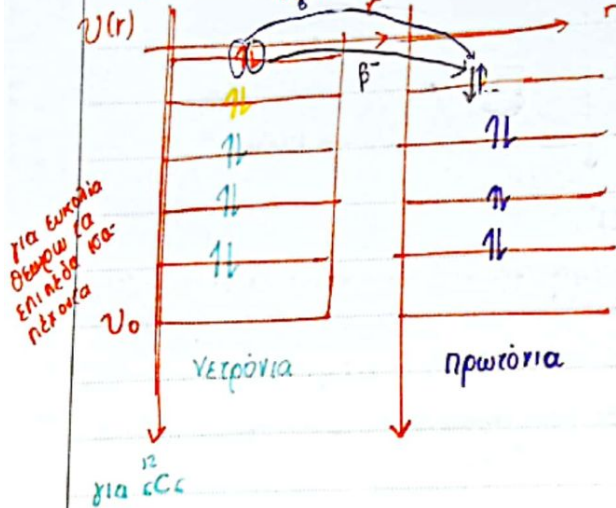 U(r)
r
β⁻
για ευκολία
θεωρω τα
επιπεδα ισα-
πέχοντα
U₀
νετρόνια
πρωτόνια
για ¹²₆C₆